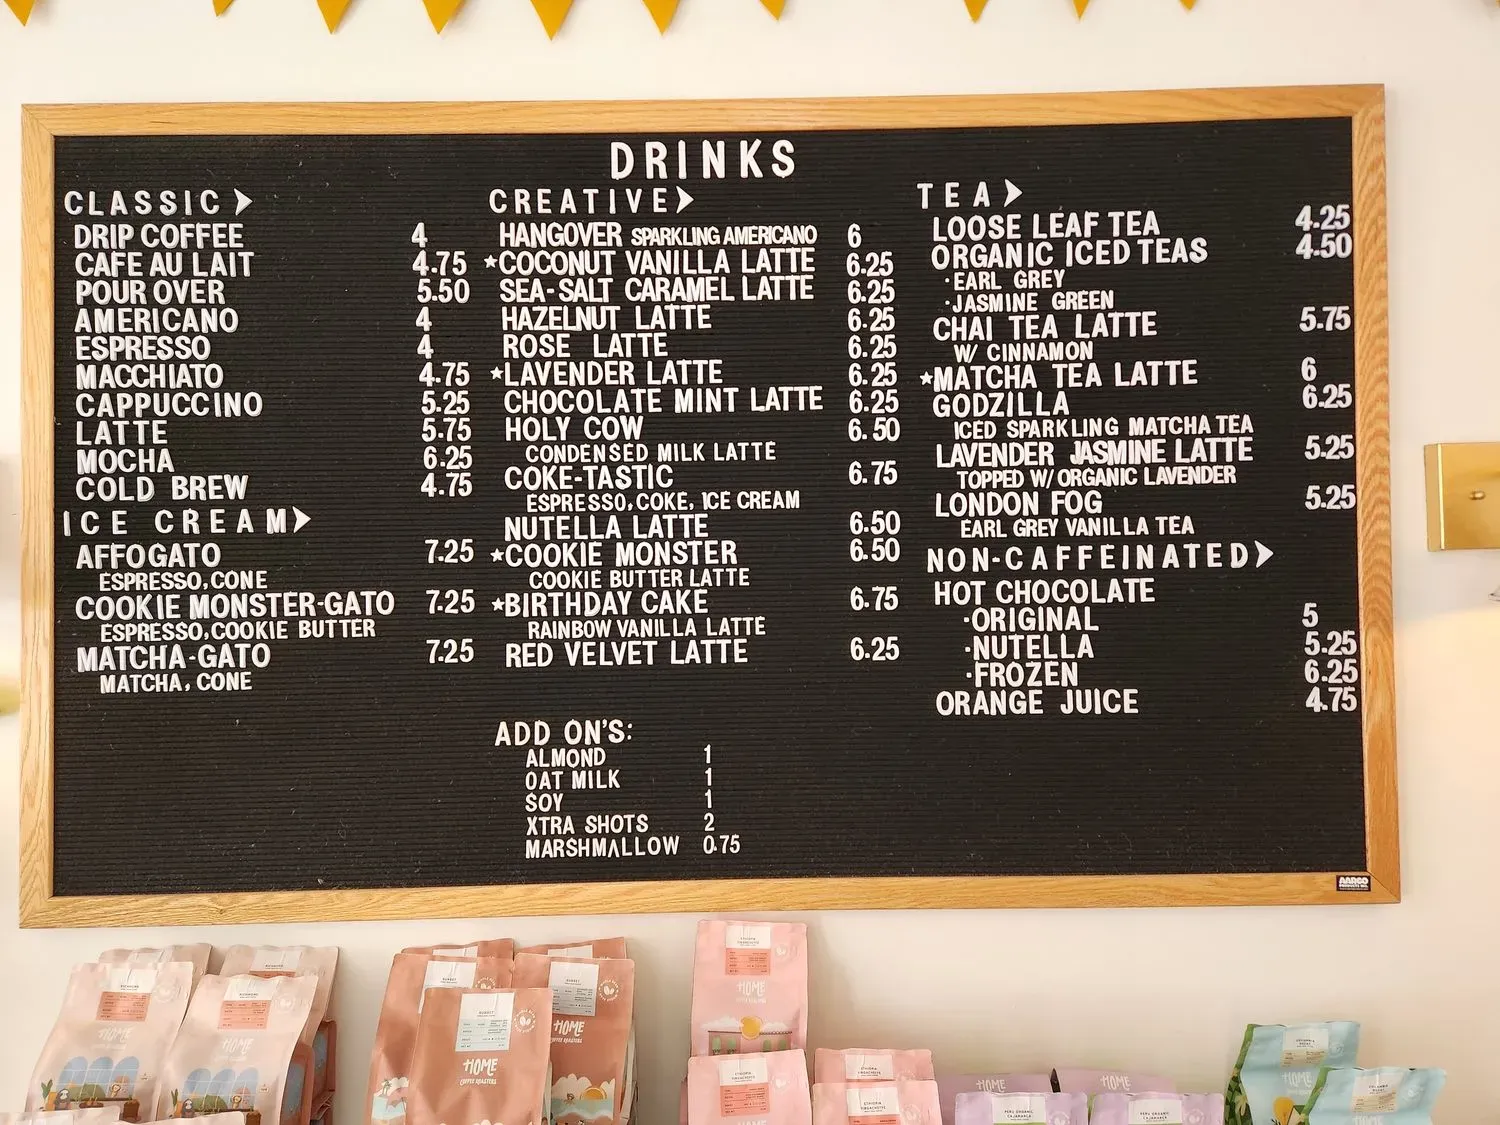 DRINKS
CLASSIC
DRIP COFFEE 4
CAFE AU LAIT 4.75
POUR OVER 5.50
AMERICANO 4
ESPRESSO 4
MACCHIATO 4.75
CAPPUCCINO 5.25
LATTE 5.75
MOCHA 6.25
COLD BREW 4.75
ICE CREAM
AFFOGATO 7.25
ESPRESSO, CONE
COOKIE MONSTER-GATO 7.25
ESPRESSO, COOKIE BUTTER
MATCHA-GATO 7.25
MATCHA, CONE
CREATIVE
HANGOVER SPARKLING AMERICANO 6
★COCONUT VANILLA LATTE 6.25
SEA-SALT CARAMEL LATTE 6.25
HAZELNUT LATTE 6.25
ROSE LATTE 6.25
★LAVENDER LATTE 6.25
CHOCOLATE MINT LATTE 6.25
HOLY COW 6.50
CONDENSED MILK LATTE
COKE-TASTIC 6.75
ESPRESSO, COKE, ICE CREAM
NUTELLA LATTE 6.50
★COOKIE MONSTER 6.50
COOKIE BUTTER LATTE
★BIRTHDAY CAKE 6.75
RAINBOW VANILLA LATTE
RED VELVET LATTE 6.25
ADD ON'S:
ALMOND 1
OAT MILK 1
SOY 1
XTRA SHOTS 2
MARSHMALLOW 0.75
TEA
LOOSE LEAF TEA 4.25
ORGANIC ICED TEAS 4.50
·EARL GREY
·JASMINE GREEN
CHAI TEA LATTE 5.75
W/ CINNAMON
★MATCHA TEA LATTE 6
GODZILLA 6.25
ICED SPARKLING MATCHA TEA
LAVENDER JASMINE LATTE 5.25
TOPPED W/ ORGANIC LAVENDER
LONDON FOG 5.25
EARL GREY VANILLA TEA
NON-CAFFEINATED
HOT CHOCOLATE
·ORIGINAL 5
·NUTELLA 5.25
·FROZEN 6.25
ORANGE JUICE 4.75
AARCO
RICHMOND
HOME
RICHMOND
HOME
SUNSET
SUNSET
HOME
COFFEE ROASTERS
SUNSET
HOME
COFFEE ROASTERS
ETHIOPIA
YIRGACHEFFE
HOME
ETHIOPIA
YIRGACHEFFE
ETHIOPIA
YIRGACHEFFE
HOME
PERU ORGANIC
CAJAMARCA
HOME
PERU ORGANIC
CAJAMARCA
COLOMBIA
DECAF
COLOMBIA